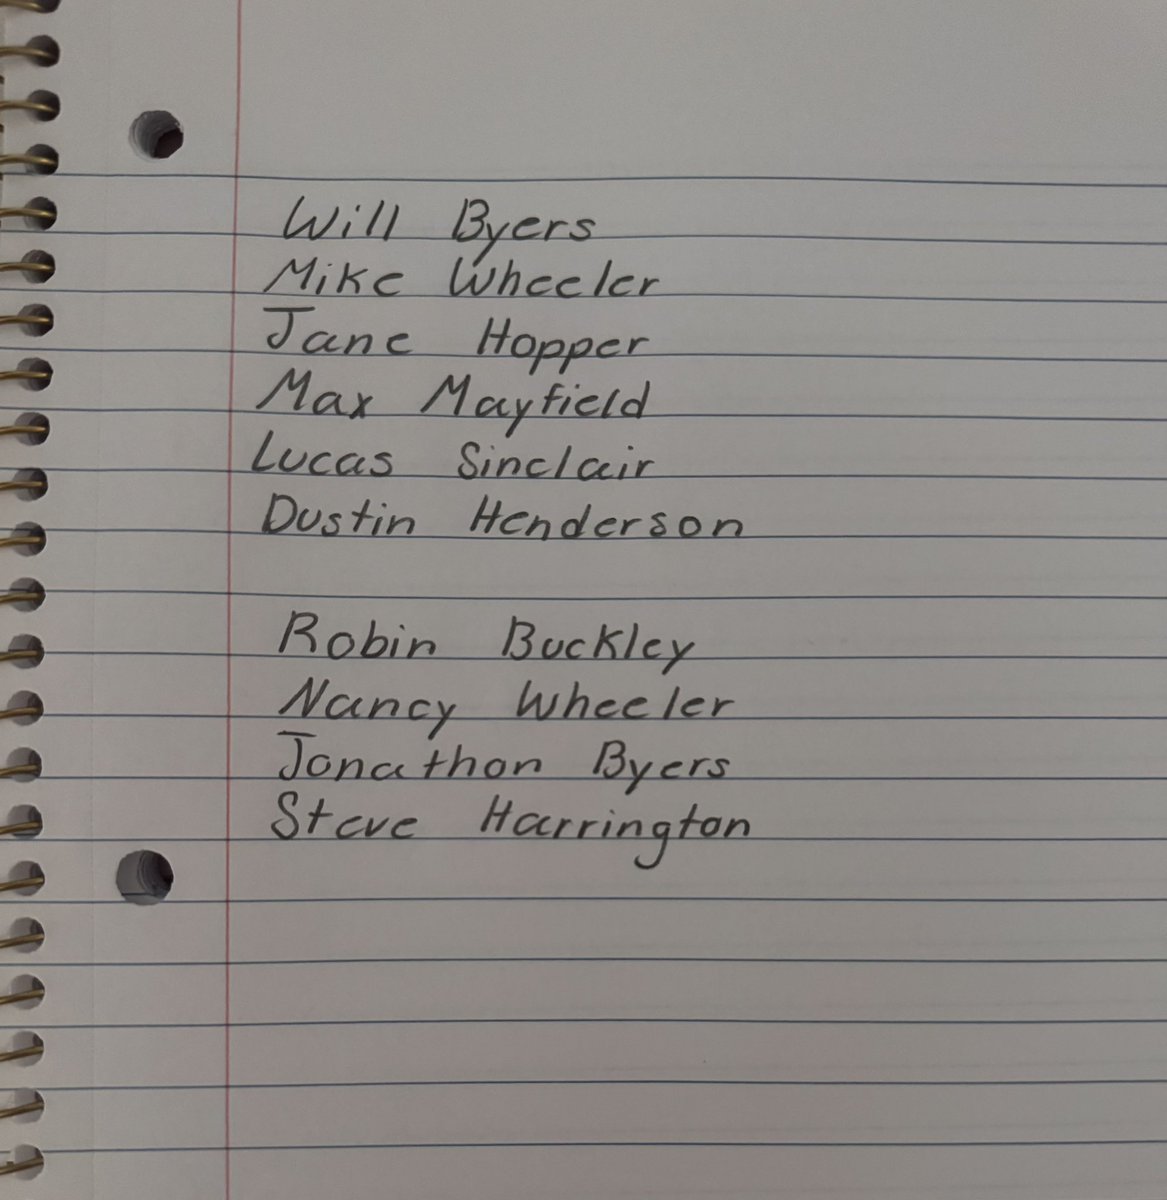 Will Byers
Mike Wheeler
Jane Hopper
Max Mayfield
Lucas Sinclair
Dustin Henderson
Robin Buckley
Nancy Wheeler
Jonathon Byers
Steve Harrington